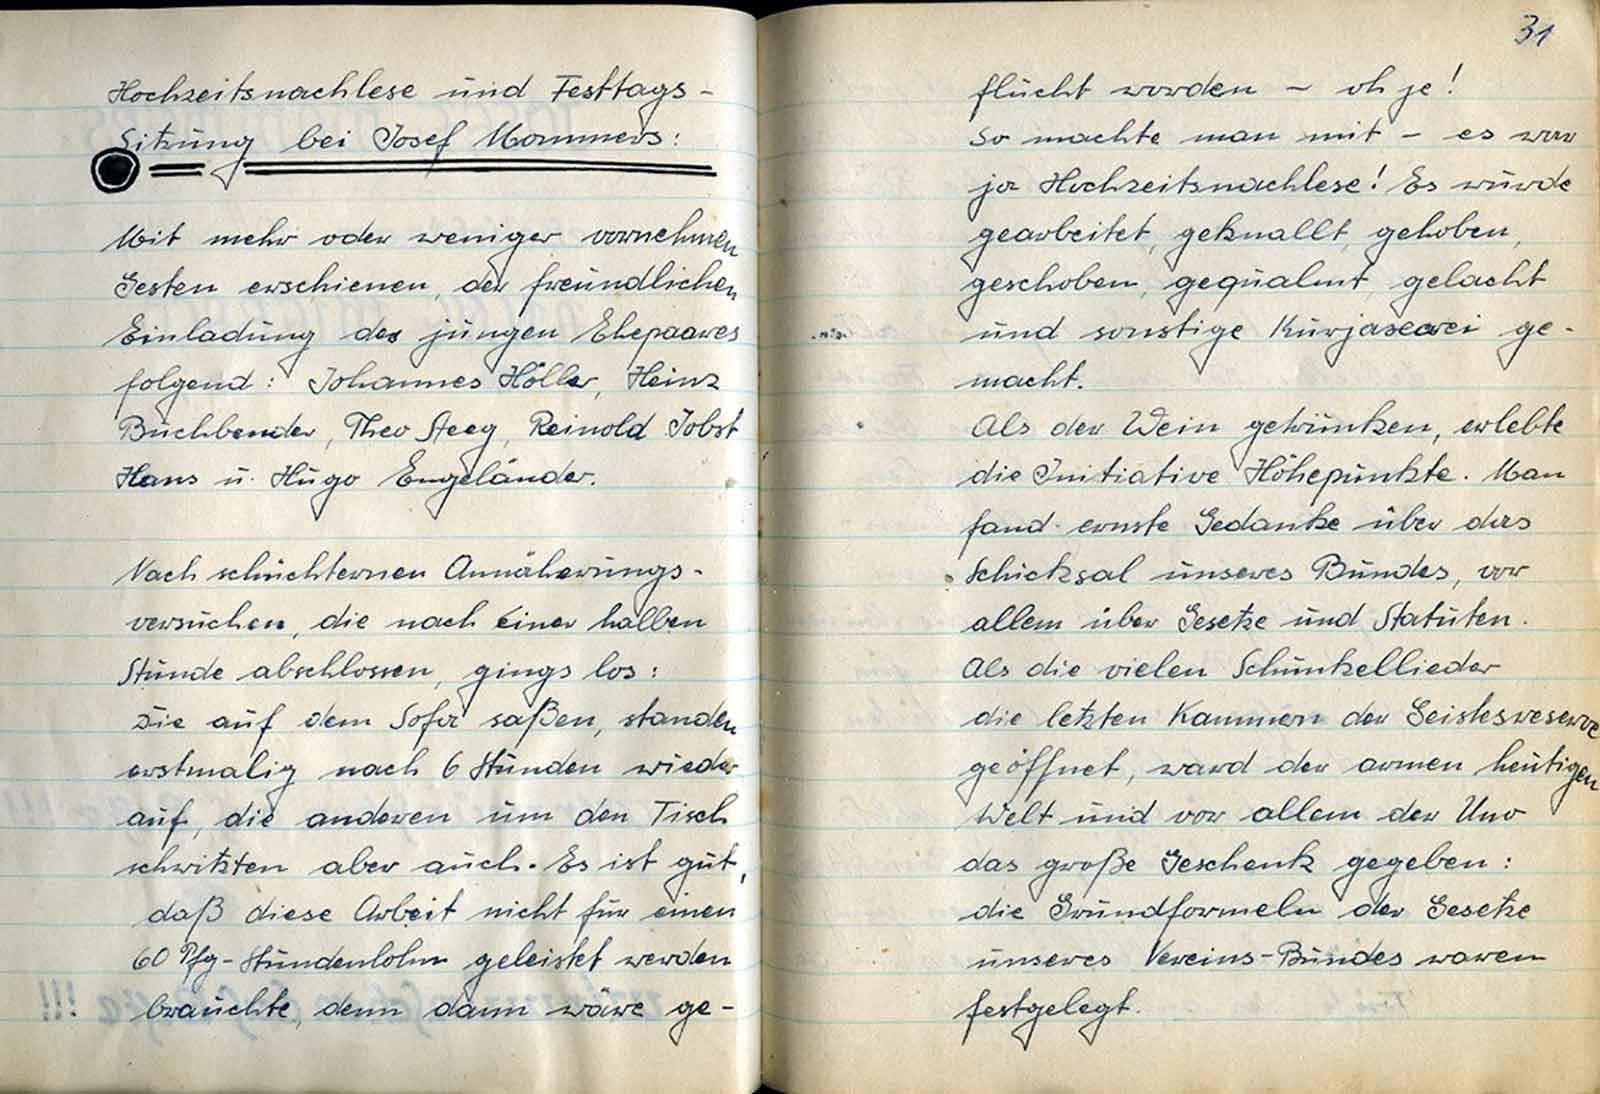 Hochzeitsnachlese und Festtags-
Sitzung bei Josef Mommers:
Mit mehr oder weniger vornehmen
Gesten erschienen, der freundlichen
Einladung des jungen Ehepaares
folgend: Johannes Höller, Heinz
Buchbender, Theo Steeg, Reinold Jobst
Hans u. Hugo Engeländer.
Nach schüchternen Annäherungs-
versuchen, die nach einer halben
Stunde abschlossen, gings los:
Die auf dem Sofa saßen, standen
erstmalig nach 6 Stunden wieder
auf, die anderen um den Tisch
schwitzten aber auch. Es ist gut,
daß diese Arbeit nicht für einen
60 Pfg-Stundenlohn geleistet werden
brauchte, denn dann wäre ge-
31
flucht worden - oh je!
So machte man mit - es war
ja Hochzeitsnachlese! Es wurde
gearbeitet, geknallt, gehoben,
geschoben, gequalmt, gelacht
und sonstige Kurjaserei ge-
macht.
Als der Wein getrunken, erlebte
die Initiative Höhepunkte. Man
fand ernste Gedanke über das
Schicksal unseres Bundes, vor
allem über Gesetze und Statuten.
Als die vielen Schunkellieder
die letzten Kammern der Geistesreserve
geöffnet, ward der armen heutigen
Welt und vor allem der Uno
das große Geschenk gegeben:
die Grundformeln der Gesetze
unseres Vereins-Bundes waren
festgelegt.